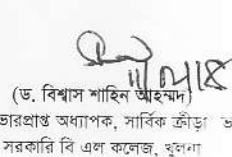 (ড. বিশ্বাস শাহিন আহম্মদ)
ভারপ্রাপ্ত অধ্যাপক, সার্বিক ক্রীড়া
সরকারি বি এল কলেজ, খুলনা